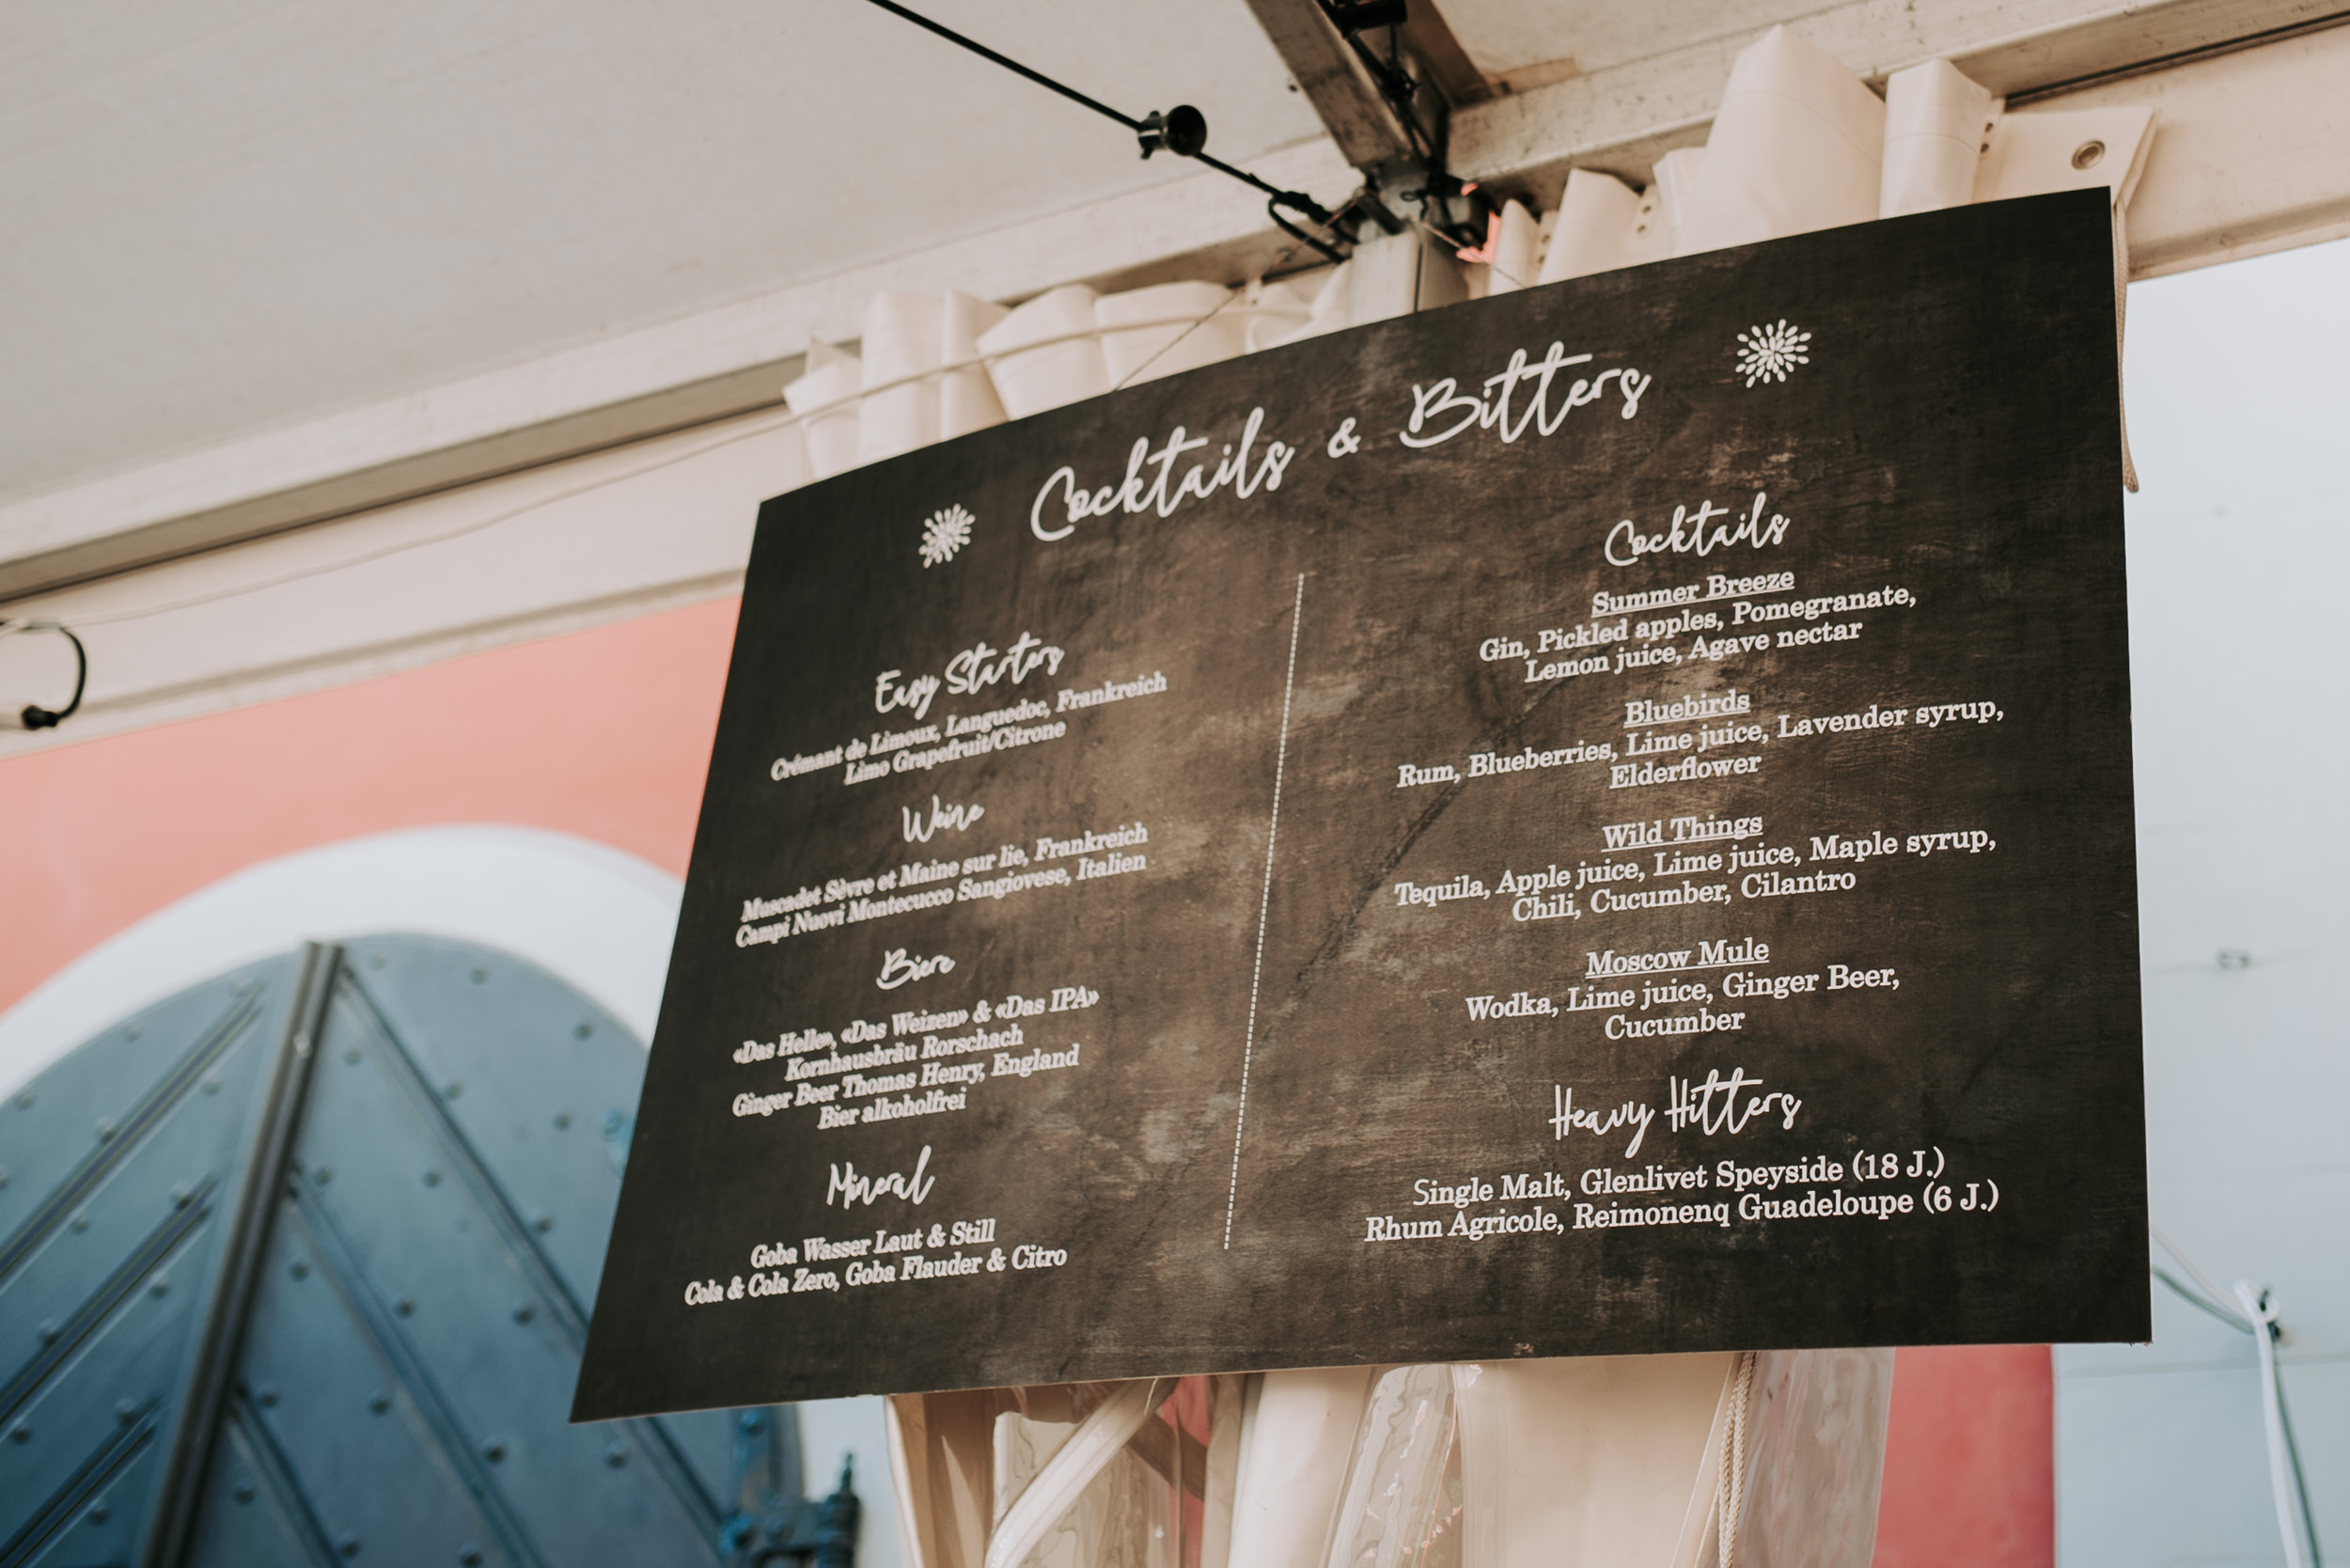 Cocktails & Bitters
Easy Starters
Crémant de Limoux, Languedoc, Frankreich
Limo Grapefruit/Citrone
Weine
Muscadet Sèvre et Maine sur lie, Frankreich
Campi Nuovi Montecucco Sangiovese, Italien
Biere
«Das Helle», «Das Weizen» & «Das IPA»
Kornhausbräu Rorschach
Ginger Beer Thomas Henry, England
Bier alkoholfrei
Mineral
Goba Wasser Laut & Still
Cola & Cola Zero, Goba Flauder & Citro
Cocktails
Summer Breeze
Gin, Pickled apples, Pomegranate,
Lemon juice, Agave nectar
Bluebirds
Rum, Blueberries, Lime juice, Lavender syrup,
Elderflower
Wild Things
Tequila, Apple juice, Lime juice, Maple syrup,
Chili, Cucumber, Cilantro
Moscow Mule
Wodka, Lime juice, Ginger Beer,
Cucumber
Heavy Hitters
Single Malt, Glenlivet Speyside (18 J.)
Rhum Agricole, Reimonenq Guadeloupe (6 J.)